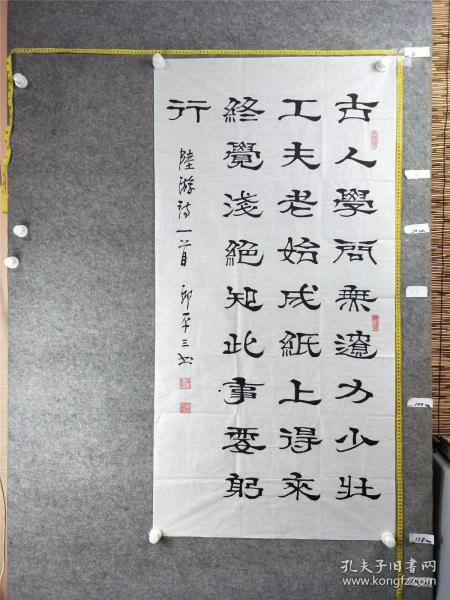 古人學問無遺力少壯
工夫老始成紙上得來
終覺淺絕知此事要躬
行
陸游詩一首 邱平三书
0
50cm
100cm
138cm
孔夫子旧书网
www.kongfz.com